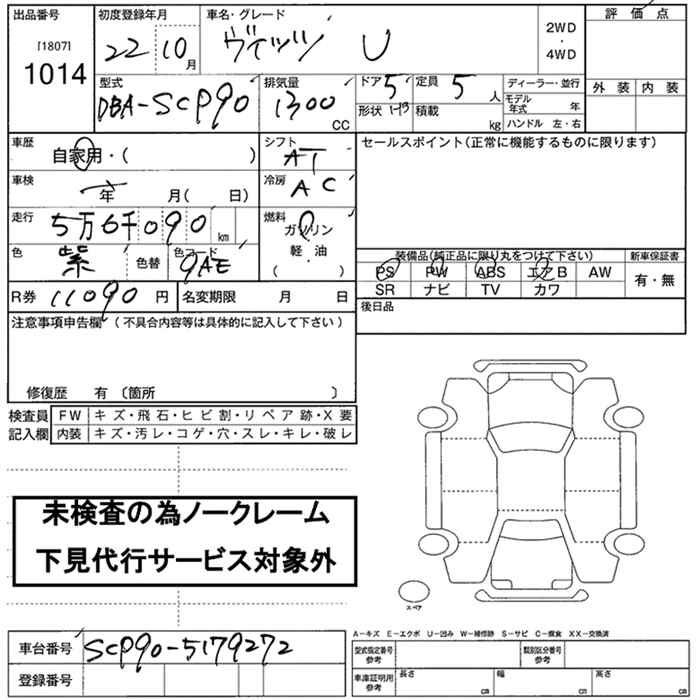 出品番号 初度登録年月 車名・グレード 評価点
[1807] 22 10月 ヴィッツ U 2WD・4WD
1014
型式 排気量 ドア 5 定員 5人 ディーラー・並行 外装 内装
DBA-SCP90 1300 CC 形状 積載 kg モデル年式 年
ハンドル 左・右
車歴 自家用・( ) シフト AT セールスポイント(正常に機能するものに限ります)
車検 年 月( 日) 冷房 AC
走行 5万6千090 km 燃料 ガソリン
軽・油
( )
色 紫 色替 色コード 9AE
装備品(純正品に限り丸をつけて下さい) 新車保証書
PS PW ABS エアB AW 有・無
SR ナビ TV カワ
R券 11090 円 名変期限 月 日 後日品
注意事項申告欄 (不具合内容等は具体的に記入して下さい)
修復歴 有 〔箇所 〕
検査員 FW キズ・飛石・ヒビ割・リペア跡・X要
記入欄 内装 キズ・汚レ・コゲ・穴・スレ・キレ・破レ
未検査の為ノークレーム
下見代行サービス対象外
スペア
A-キズ E-エクボ U-凹み W-補修跡 S-サビ C-腐食 XX-交換済
車台番号 SCP90-5179272 型式指定番号 参考 類別区分番号 参考
登録番号 車庫証明用 参考 長さ cm 幅 cm 高さ cm